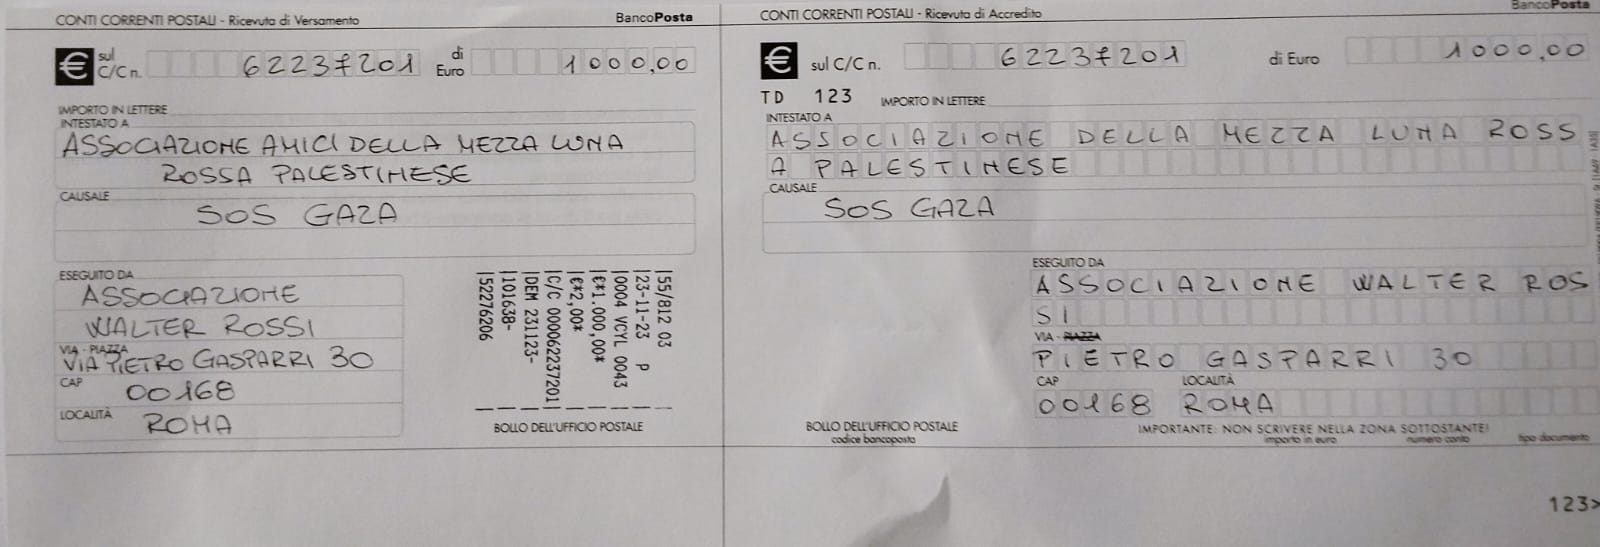 CONTI CORRENTI POSTALI - Ricevuta di Versamento BancoPosta
€ sul C/C n. 62237201 di Euro 1000,00
IMPORTO IN LETTERE
INTESTATO A
ASSOCIAZIONE AMICI DELLA MEZZA LUNA
ROSSA PALESTINESE
CAUSALE
SOS GAZA
ESEGUITO DA
ASSOCIAZIONE
WALTER ROSSI
VIA - PIAZZA
VIA PIETRO GASPARRI 30
CAP
00168
LOCALITÀ
ROMA
|55/812 03
|23-11-23 P
|0004 VCYL 0043
|€*1.000,00*
|€*2,00*
|C/C 000062237201|
|DEM 231123-
|101638-
|52276206
BOLLO DELL'UFFICIO POSTALE
CONTI CORRENTI POSTALI - Ricevuta di Accredito BancoPosta
€ sul C/C n. 62237201 di Euro 1000,00
TD 123 IMPORTO IN LETTERE
INTESTATO A
ASSOCIAZIONE DELLA MEZZA LUNA ROSS
A PALESTINESE
CAUSALE
SOS GAZA
ESEGUITO DA
ASSOCIAZIONE WALTER ROS
SI
VIA - PIAZZA
PIETRO GASPARRI 30
CAP LOCALITÀ
00168 ROMA
BOLLO DELL'UFFICIO POSTALE
codice bancoposta
IMPORTANTE: NON SCRIVERE NELLA ZONA SOTTOSTANTE!
importo in euro numero conto tipo documento
123>